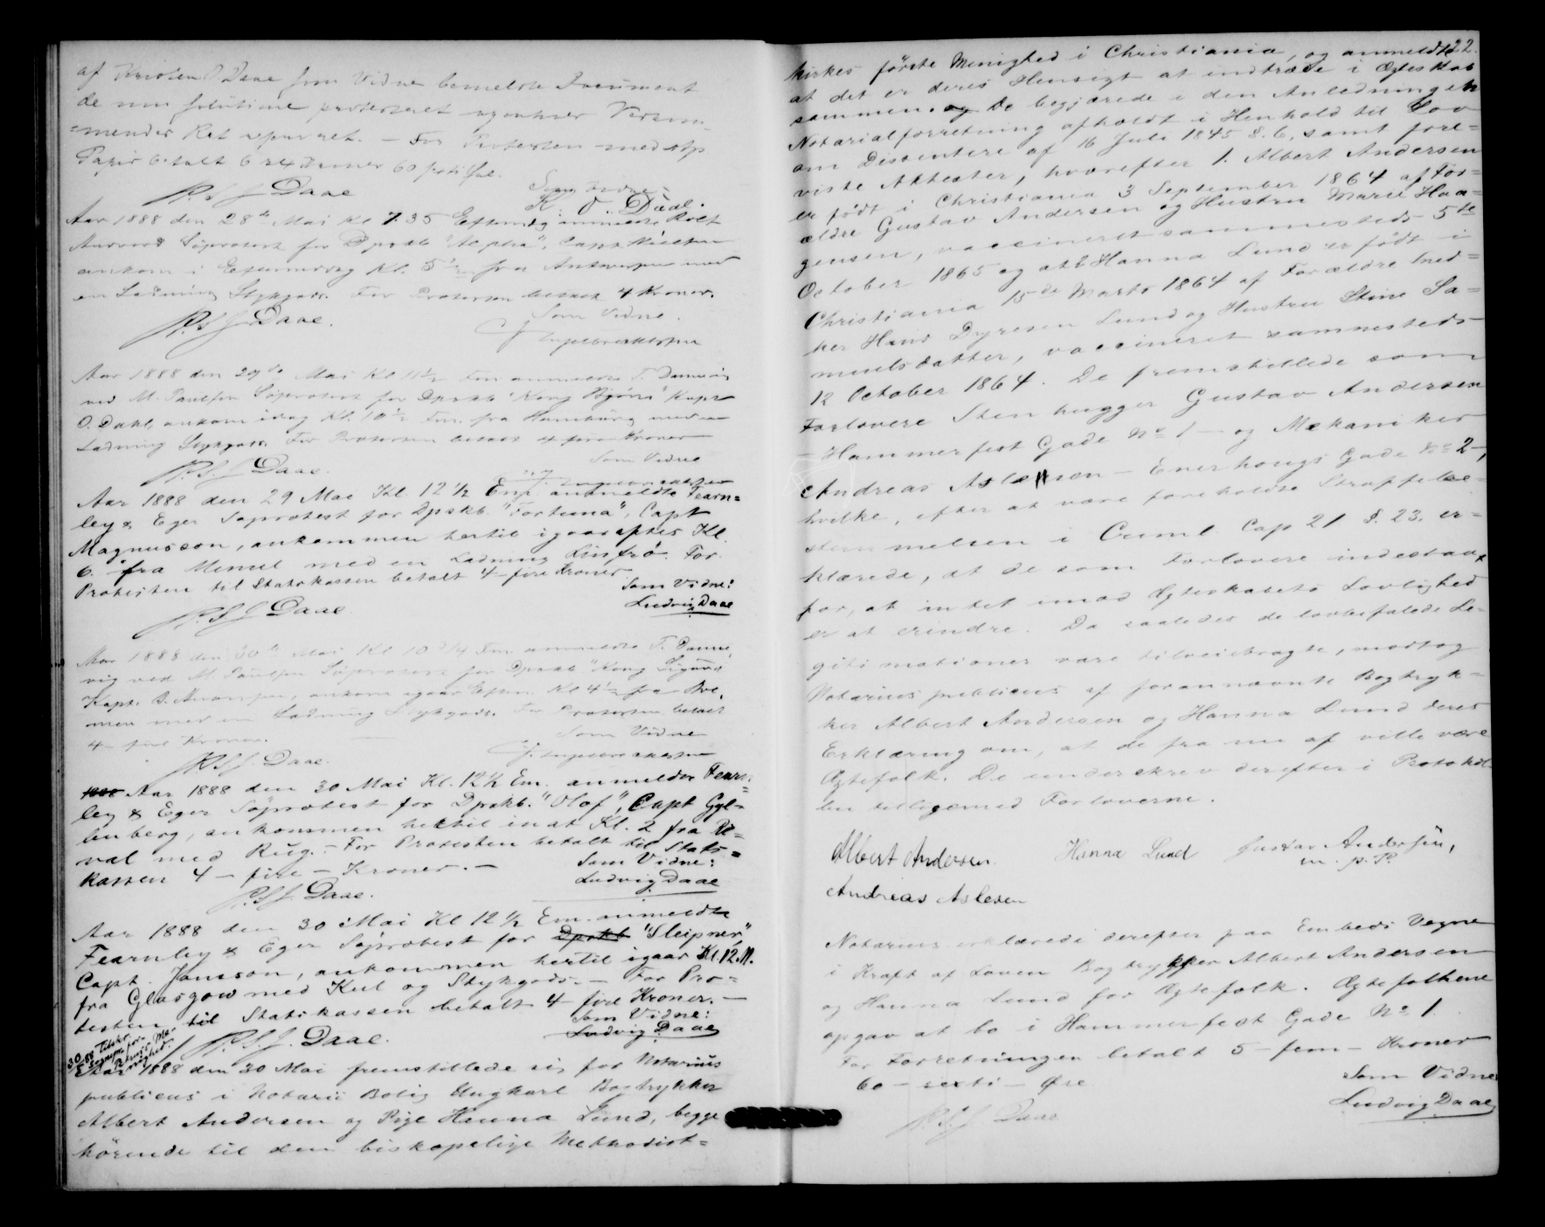 af Kristen O Daae som Vidne bemeldte Document
de non solutione protesteret og enhver Vedkom-
mendes Ret reserveret. — For Protesten med stp.
Papir betalt 6 sex Kroner 60 sexti Øre.
Som Vidne:
P. S. J. Daae K. O. Daae.
Aar 1888 den 28de Mai Kl 7.35 Eftermdg anmeldte Rolf
Søprotest for Dpskb "Alpha", Capt Nielsen
ankom i Eftermiddag Kl. 5½ fra Antwerpen med
en Ladning Stykgods. For Protesten betalt 4 Kroner.
P. S. J. Daae. Som Vidne.
J. Ingebrethsen
Aar 1888 den 29de Mai Kl 11½ Fm anmeldte T. Dannevig
ved M. Paulsen Søprotest for Dpskb "Kong Bjørn" Kapt
O. Dahl, ankom idag Kl. 10½ Fm. fra Hamburg med en
Ladning Stykgods. For Protesten betalt 4 fire Kroner
P. S. J. Daae. Som Vidne
J. Ingebrethsen
Aar 1888 den 29 Mai Kl 12½ Em. anmeldte Fearn=
ley & Eger Søprotest for Dpskb. "Fortuna", Capt
Magnusson, ankommen hertil igaaraftes Kl.
6. fra Memel med en Ladning Linfrø. For
Protesten til Statskassen betalt 4 – fire Kroner
Som Vidne:
P. S. J. Daae Ludvig Daae
Aar 1888 den 30te Mai Kl 10 3/4 Fm anmeldte T. Danne-
vig ved M. Paulsen Søprotest for Dpskb "Kong Sigurd"
Kapt. ankom igaar Eftm. Kl 4½ fra Bre-
men med en Ladning Stykgods. For Protesten betalt
4 – fire Kroner. Som Vidne
P. S. J. Daae. J. Ingebrethsen
Aar 1888 den 30 Mai Kl. 12½ Em. anmeldte Fearn=
ley & Eger Søprotest for Dpskb. "Olof", Capt Gyl=
lenberg, ankommen hertil inat Kl. 2 fra Re=
val med Rug. – For Protesten betalt til Stats=
kassen 4 – fire – Kroner. – Som Vidne:
P. S. J. Daae. Ludvig Daae
Aar 1888 den 30 Mai Kl 12½ Em anmeldte
Fearnley & Eger Søprotest for Dpskb "Sleipner",
Capt Jansson, ankommen hertil igaar Kl. 12 M.
fra Glasgow med Kul og Stykgods. – For Pro=
testen til Statskassen betalt 4 fire Kroner. –
Som Vidne:
P. S. J. Daae. Ludvig Daae
Aar 1888 den 30 Mai fremstillede sig for Notarius
publicus i Notarii Bolig Ungkarl Bogtrykker
Albert Andersen og Pige Hanna Lund, begge
hørende til den biskopelige Methodist=
22.
kirkes første Menighed i Christiania, og anmeldte
at det er deres Hensigt at indtræde i Ægteskab
sammen. og De begjærede i den Anledningen
Notarialforretning afholdt i Henhold til Lov
om Dissentere af 16 Juli 1845 §. 6, samt fore=
viste Attester, hvorefter 1. Albert Andersen
er født i Christiania 3 September 1864 af For=
ældre Gustav Andersen og Hustru Marie Haa=
gensen, vaccineret sammesteds 5te
October 1865 og at 2. Hanna Lund er født i
Christiania 15de Marts 1864 af Forældre Sned=
ker Hans Dyresen Lund og Hustru Stine Sa=
muelsdatter, vaccineret sammesteds
12 October 1864. De fremstillede som
Forlovere Stenhugger Gustav Andersen
– Hammerfest Gade No 1 – og Mekaniker
Andreas Aslesen – Enerhougs Gade No 2 –,
hvilke, efter at være foreholdte Straffebe=
stemmelsen i Criml Cap 21 §. 23. er=
klærede, at de som Forlovere indestaar
for, at intet imod Ægteskabets Lovlighed
er at erindre. Da saaledes de lovbefalede Le=
gitimationer vare tilveiebragte, modtog
Notarius publicus af forannævnte Bogtryk=
ker Albert Andersen og Hanna Lund deres
Erklæring om, at de fra nu af ville være
Ægtefolk. De underskrev derefter i Protokol=
len tilligemed Forloverne.
Albert Andersen. Hanna Lund Gustav Andersen,
m. p. P.
Andreas Aslesen
Notarius erklærede derefter paa Embeds Vegne
i Kraft af Loven Bogtrykker Albert Andersen
og Hanna Lund for Ægtefolk. Ægtefolkene
opgav at bo i Hammerfest Gade No 1.
For Forretningen betalt 5 – fem – Kroner
60 – sexti – Øre. Som Vidne
P. S. J. Daae Ludvig Daae